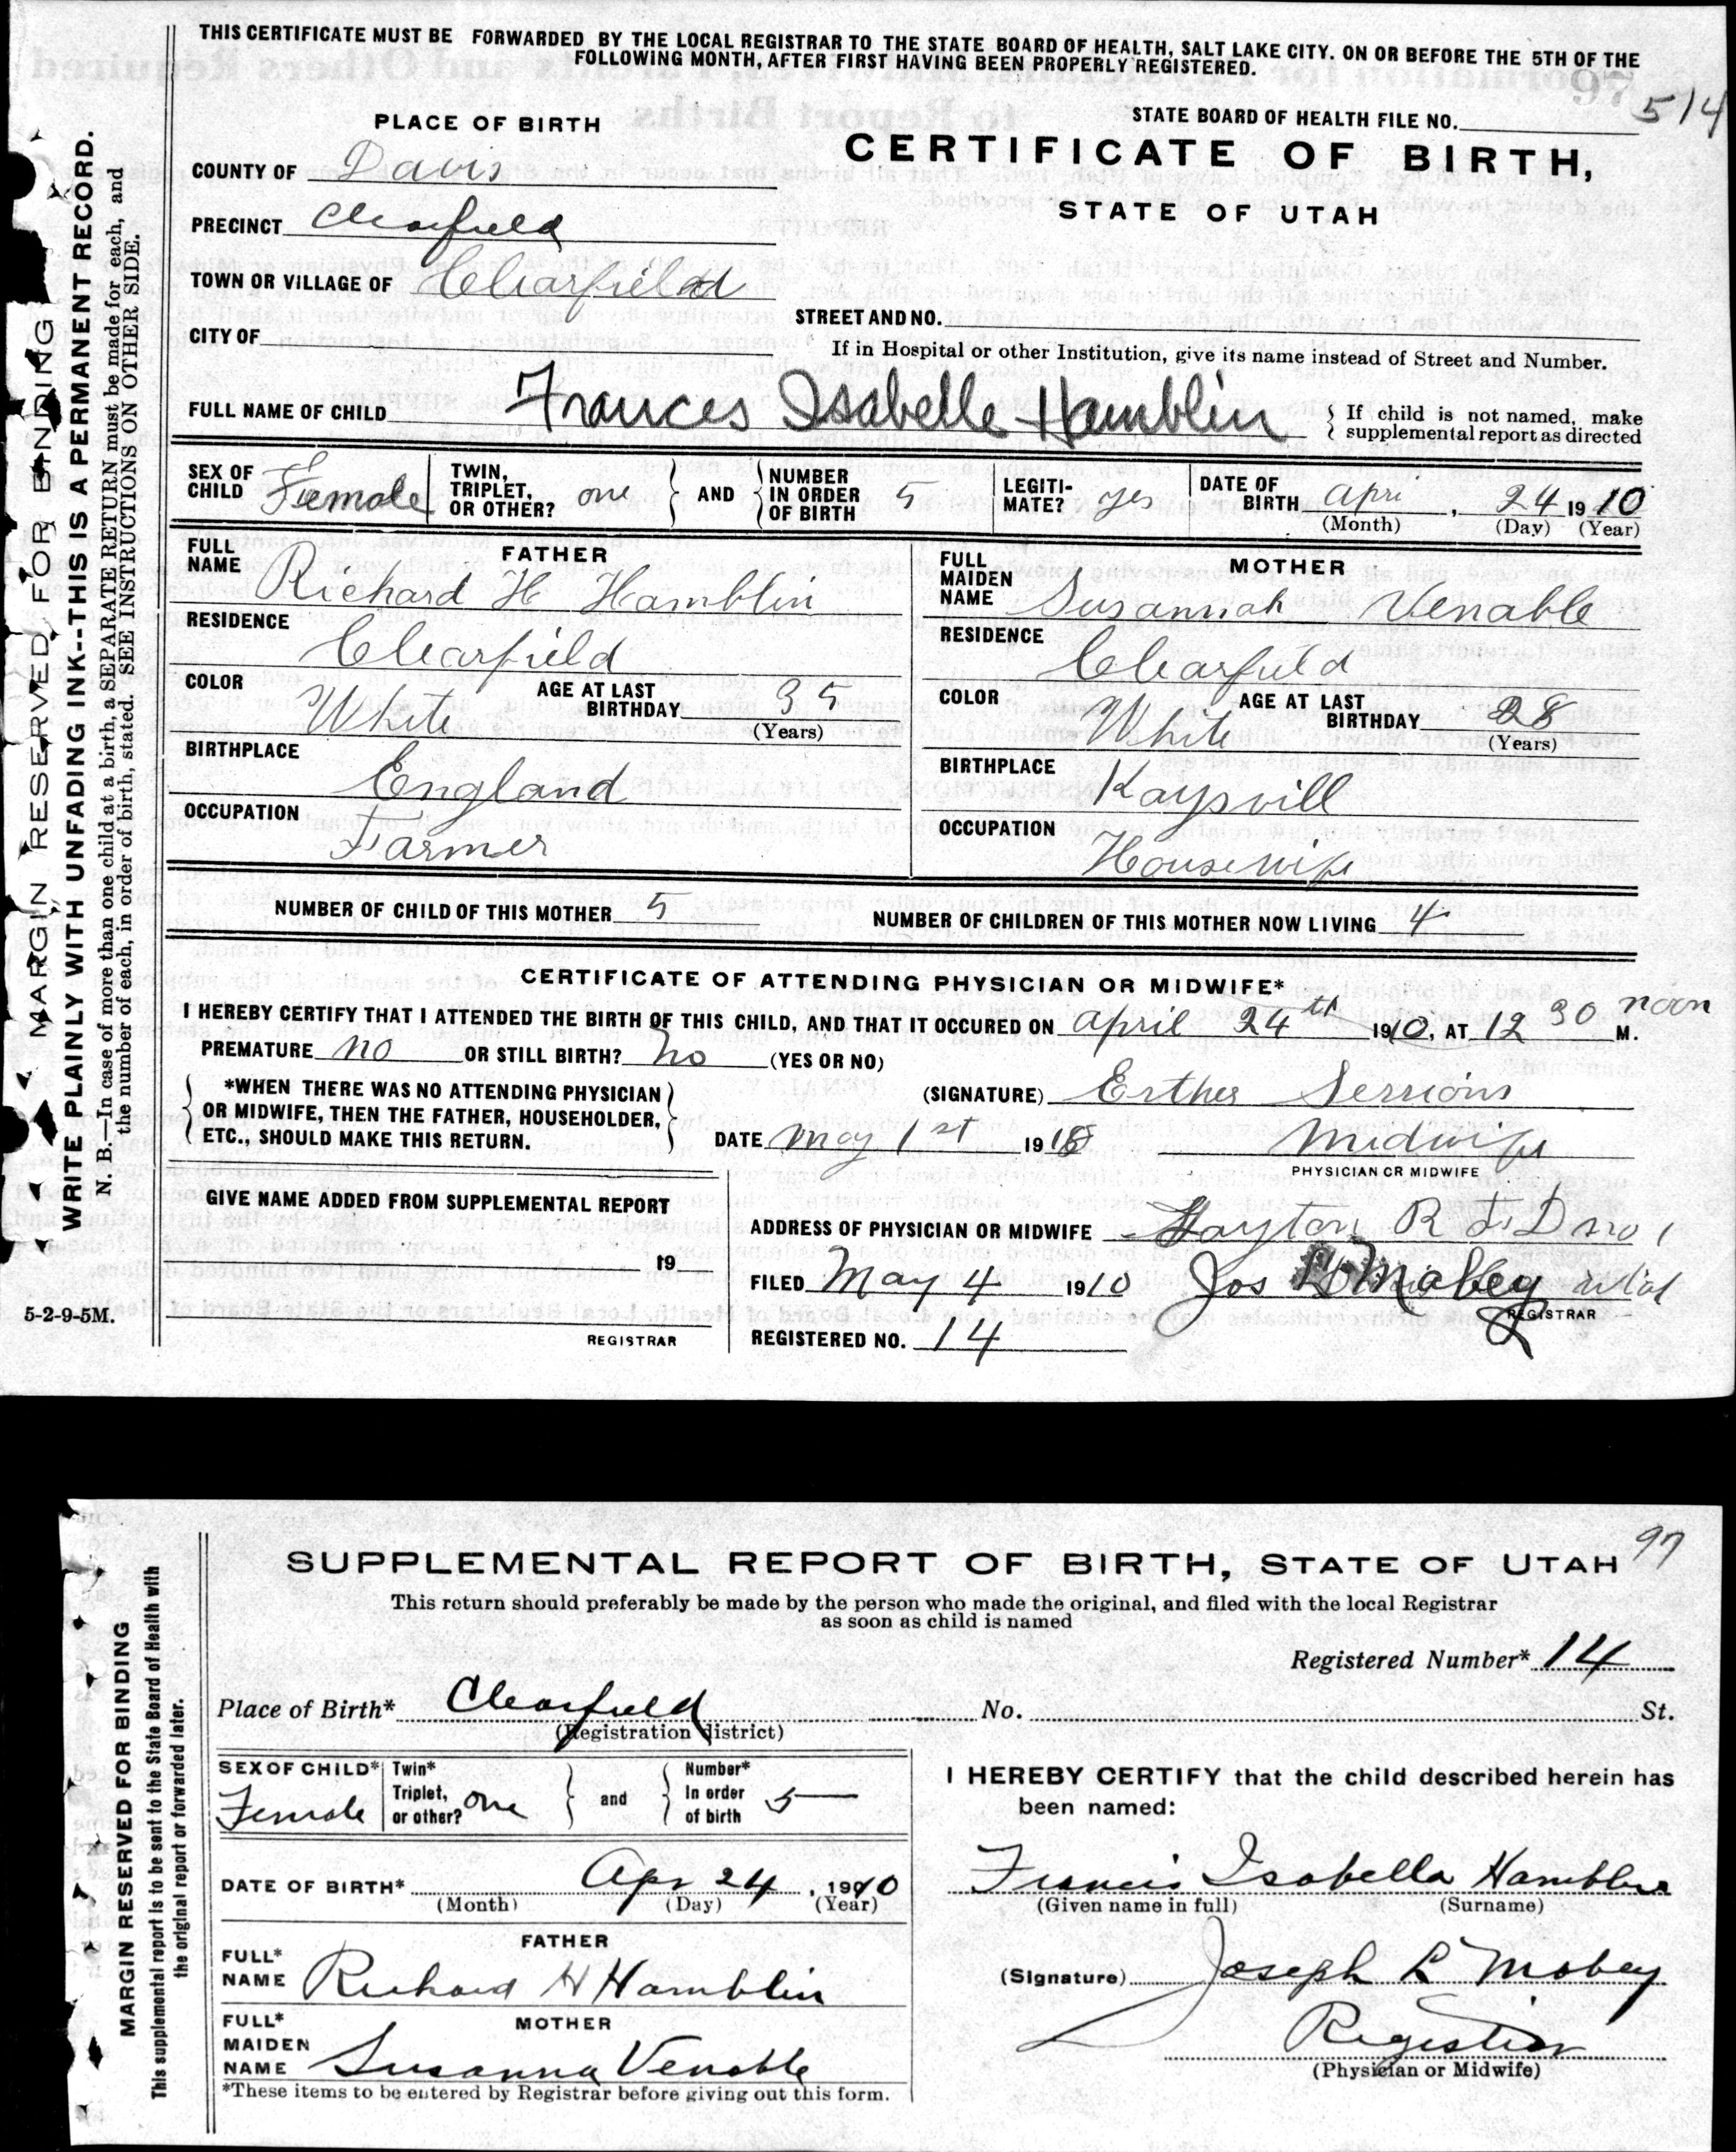 THIS CERTIFICATE MUST BE FORWARDED BY THE LOCAL REGISTRAR TO THE STATE BOARD OF HEALTH, SALT LAKE CITY. ON OR BEFORE THE 5TH OF THE
FOLLOWING MONTH, AFTER FIRST HAVING BEEN PROPERLY REGISTERED.
97
514
STATE BOARD OF HEALTH FILE NO.
PLACE OF BIRTH
CERTIFICATE OF BIRTH,
STATE OF UTAH
COUNTY OF Davis
PRECINCT Clearfield
TOWN OR VILLAGE OF Clearfield
CITY OF
STREET AND NO.
If in Hospital or other Institution, give its name instead of Street and Number.
FULL NAME OF CHILD Frances Isabelle Hamblin
If child is not named, make
supplemental report as directed
SEX OF CHILD Female
TWIN, TRIPLET, OR OTHER? one
AND
NUMBER IN ORDER OF BIRTH 5
LEGITI-MATE? yes
DATE OF BIRTH Apri 24 1910
(Month) (Day) (Year)
FATHER
FULL NAME Richard H Hamblin
RESIDENCE
Clearfield
COLOR White
AGE AT LAST BIRTHDAY 35
(Years)
BIRTHPLACE
England
OCCUPATION
Farmer
MOTHER
FULL MAIDEN NAME Susannah Venable
RESIDENCE
Clearfield
COLOR White
AGE AT LAST BIRTHDAY 28
(Years)
BIRTHPLACE
Kaysvill
OCCUPATION
Housewife
NUMBER OF CHILD OF THIS MOTHER 5
NUMBER OF CHILDREN OF THIS MOTHER NOW LIVING 4
CERTIFICATE OF ATTENDING PHYSICIAN OR MIDWIFE*
I HEREBY CERTIFY THAT I ATTENDED THE BIRTH OF THIS CHILD, AND THAT IT OCCURED ON April 24th 1910, AT 12 30 noon M.
PREMATURE no OR STILL BIRTH? no (YES OR NO)
*WHEN THERE WAS NO ATTENDING PHYSICIAN
OR MIDWIFE, THEN THE FATHER, HOUSEHOLDER,
ETC., SHOULD MAKE THIS RETURN.
(SIGNATURE) Esther Sessions
DATE May 1st 191
Midwife
PHYSICIAN OR MIDWIFE
GIVE NAME ADDED FROM SUPPLEMENTAL REPORT
19
REGISTRAR
ADDRESS OF PHYSICIAN OR MIDWIFE Layton R F D no 1
FILED May 4 1910 Jos Mabey
REGISTRAR
REGISTERED NO. 14
5-2-9-5M.
MARGIN RESERVED FOR BINDING
WRITE PLAINLY WITH UNFADING INK--THIS IS A PERMANENT RECORD.
N. B.—In case of more than one child at a birth, a SEPARATE RETURN must be made for each, and
the number of each, in order of birth, stated. SEE INSTRUCTIONS ON OTHER SIDE.
97
SUPPLEMENTAL REPORT OF BIRTH, STATE OF UTAH
This return should preferably be made by the person who made the original, and filed with the local Registrar
as soon as child is named
Registered Number* 14
Place of Birth* Clearfield No. St.
(Registration district)
SEX OF CHILD* Female
Twin* Triplet, or other? one
and
Number* In order of birth 5
DATE OF BIRTH* Apr 24, 1910
(Month) (Day) (Year)
FATHER
FULL* NAME Richard H Hamblin
MOTHER
FULL* MAIDEN NAME Susanna Venable
*These items to be entered by Registrar before giving out this form.
I HEREBY CERTIFY that the child described herein has
been named:
Francis Isabella Hamblin
(Given name in full) (Surname)
(Signature) Joseph L Mabey
Registrar
(Physician or Midwife)
MARGIN RESERVED FOR BINDING
This supplemental report is to be sent to the State Board of Health with
the original report or forwarded later.